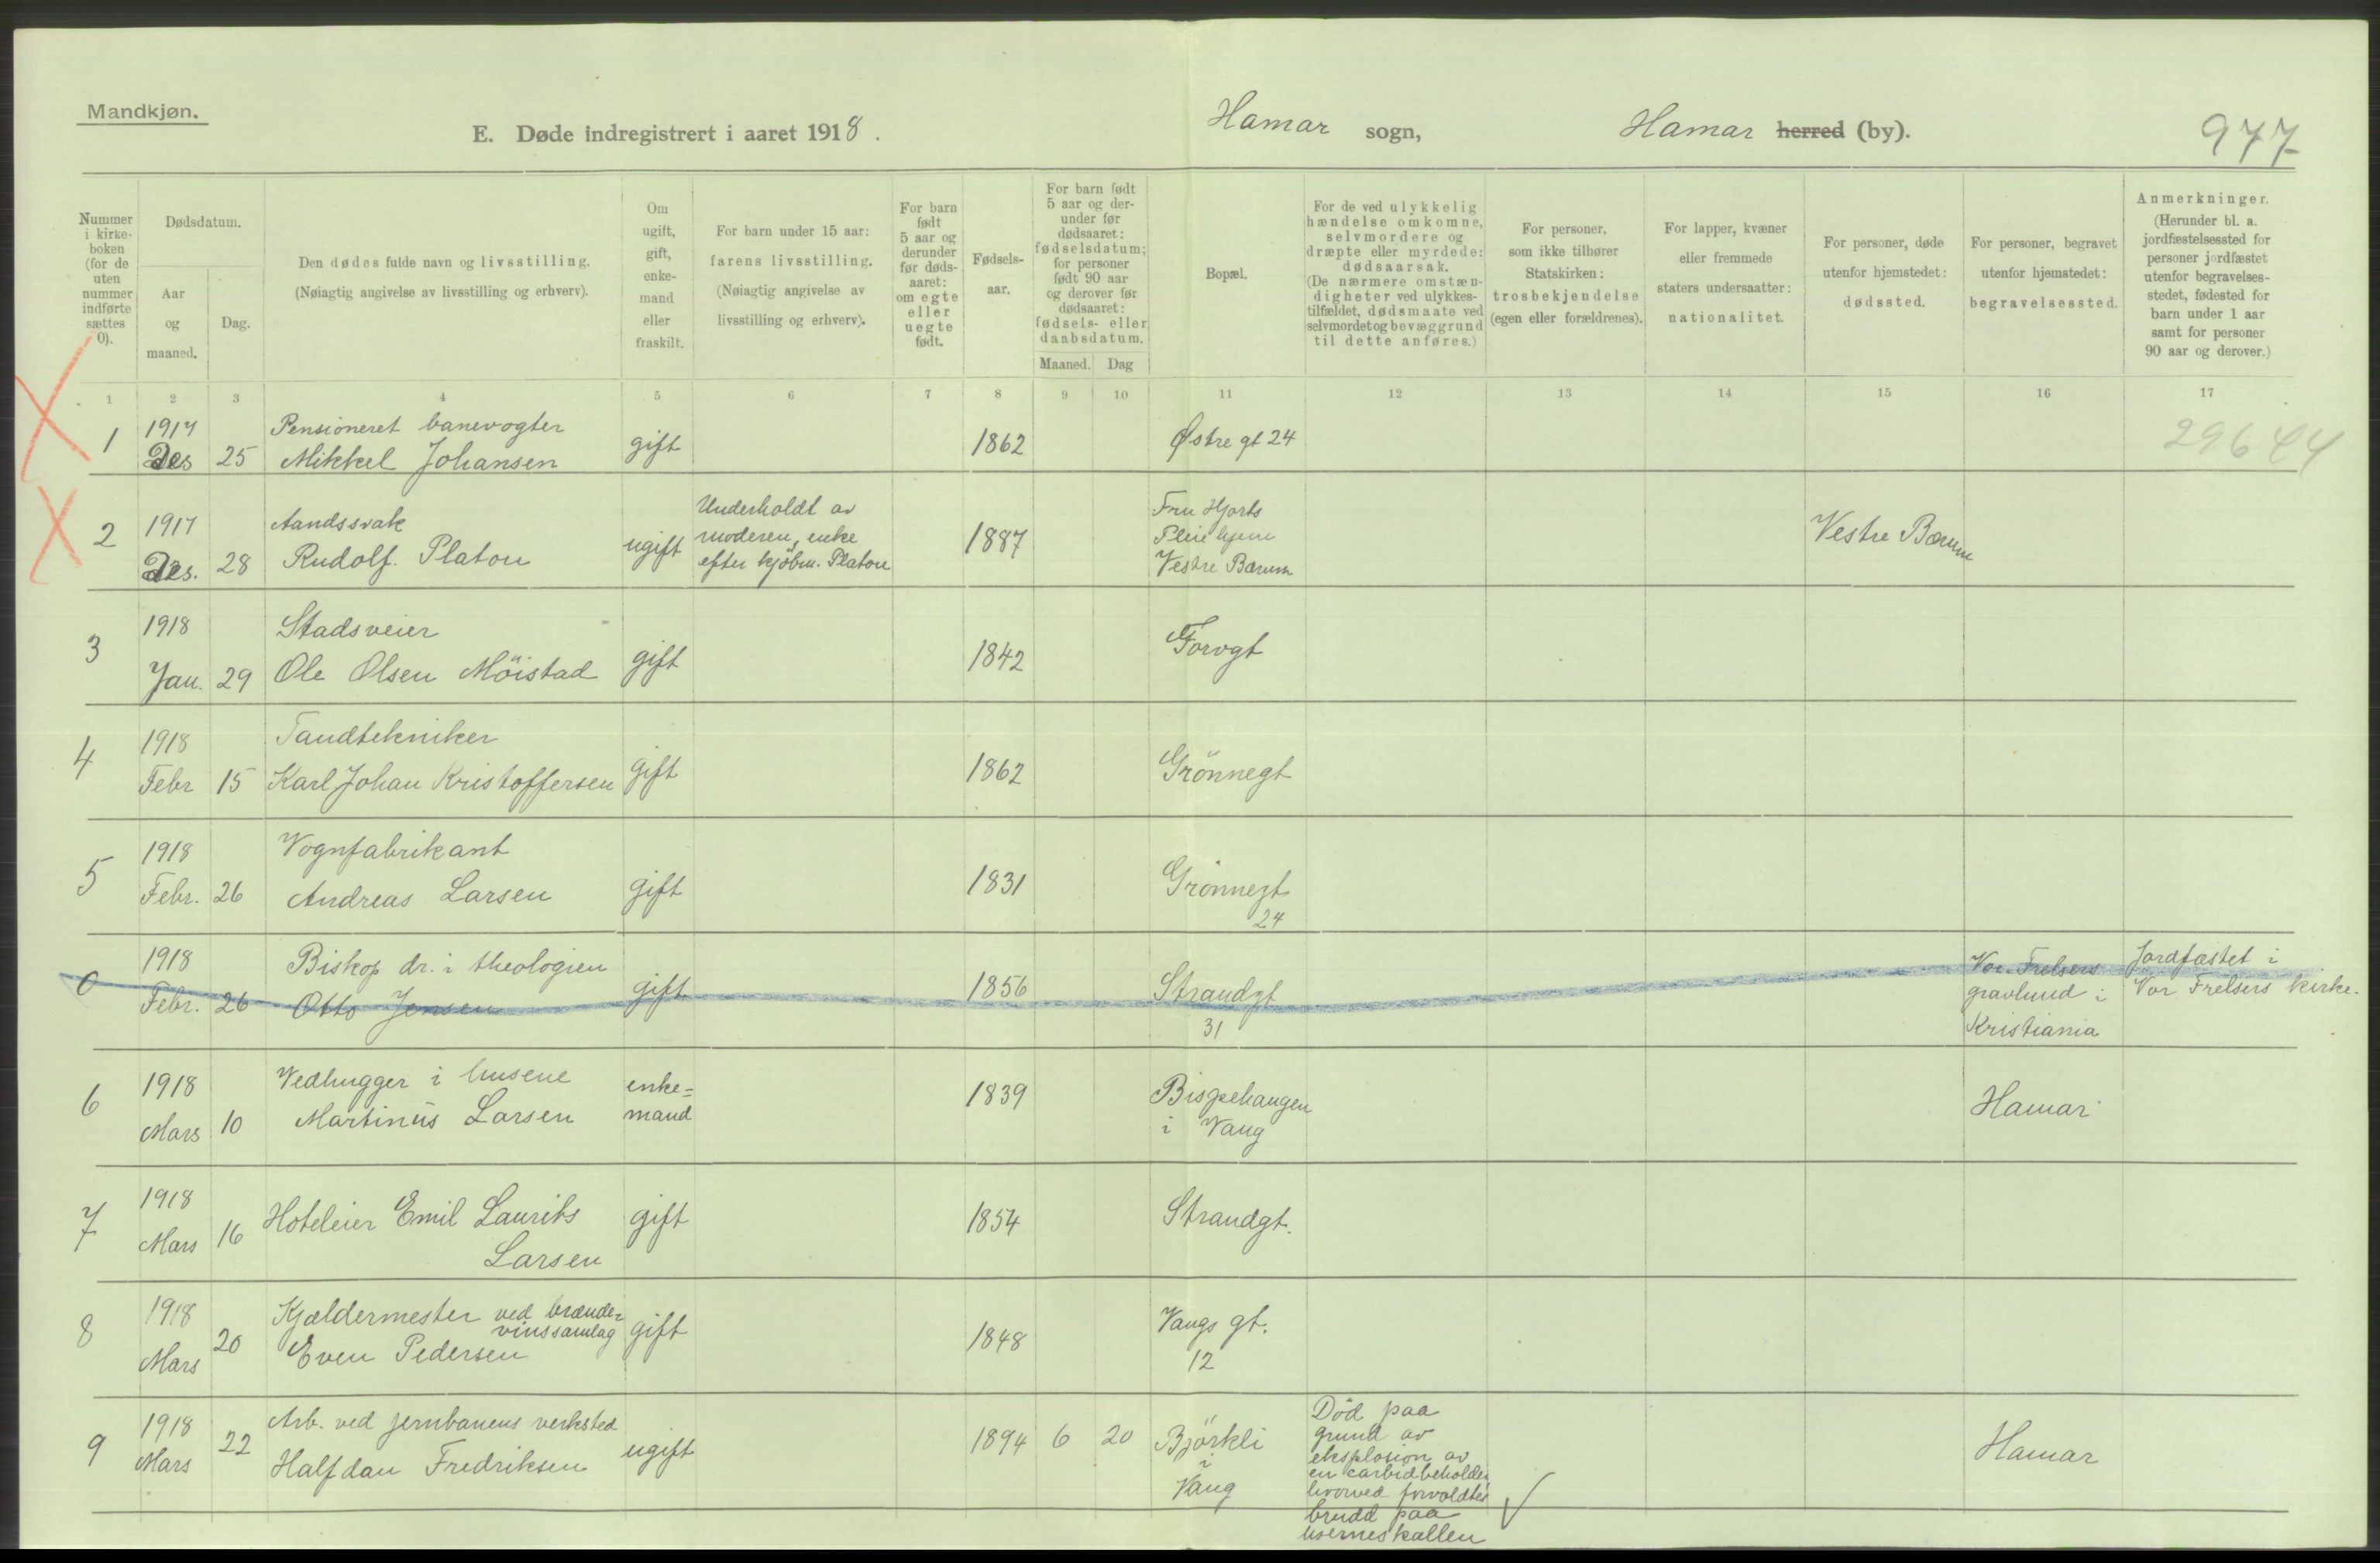 Mandkjøn.
E. Døde indregistrert i aaret 1918.
Hamar sogn,
Hamar herred (by).
977
Nummer i kirke-boken (for de uten nummer indførte sættes 0).
Dødsdatum.
Aar og maaned.
Dag.
Den dødes fulde navn og livsstilling.
(Nøiagtig angivelse av livsstilling og erhverv).
Om ugift, gift, enke-mand eller fraskilt.
For barn under 15 aar:
farens livsstilling.
(Nøiagtig angivelse av
livsstilling og erhverv).
For barn født 5 aar og derunder før døds-aaret: om egte eller uegte født.
Fødsels-aar.
For barn født
5 aar og der-
under før
dødsaaret:
fødselsdatum;
for personer
født 90 aar
og derover før
dødsaaret:
fødsels- eller
daabsdatum.
Maaned. Dag
Bopæl.
For de ved ulykkelig
hændelse omkomne,
selvmordere og
dræpte eller myrdede:
dødsaarsak.
(De nærmere omstæn-
digheter ved ulykkes-
tilfældet, dødsmaate ved
selvmordet og bevæggrund
til dette anføres.)
For personer,
som ikke tilhører
Statskirken:
trosbekjendelse
(egen eller forældrenes).
For lapper, kvæner
eller fremmede
staters undersaatter:
nationalitet.
For personer, døde
utenfor hjemstedet:
dødssted.
For personer, begravet
utenfor hjemstedet:
begravelsessted.
Anmerkninger.
(Herunder bl. a.
jordfæstelsessted for
personer jordfæstet
utenfor begravelses-
stedet, fødested for
barn under 1 aar
samt for personer
90 aar og derover.)
1 2 3 4 5 6 7 8 9 10 11 12 13 14 15 16 17
1 1917 Pensioneret banevogter
Des 25 Mikkel Johansen gift 1862 Østre gt 24 29644
2 1917 Aandssvak
Des. 28 Rudolf. Platou ugift
Underholdt av
moderen, enke
efter kjöbm. Platou
1887
Fru Hjorts
Pleiehjem
Vestre Bærum
Vestre Bærum
3 1918 Stadsveier
Jan. 29 Ole Olsen Möistad gift 1842 Torvgt
4 1918 Tandtekniker
Febr 15 Karl Johan Kristoffersen gift 1862 Grönnegt
5 1918 Vognfabrikant
Febr. 26 Andreas Larsen gift 1831 Grönnegt
24
0 1918 Biskop dr. i theologien
Febr. 26 Otto Jensen gift 1856 Strandgt
31
Vor Frelsers
gravlund i
Kristiania
Jordfæstet i
Vor Frelsers kirke.
6 1918 Vedhugger i husene
Mars 10 Martinus Larsen
enke=
mand
1839
Bispehaugen
i Vang
Hamar
7 1918
Mars 16 Hoteleier Emil Laurits
Larsen
gift 1854 Strandgt.
8 1918
Mars 20
Kjældermester ved brænde=
vinssamlag
Even Pedersen
gift 1848
Vangs gt.
12
9 1918
Mars 22
Arb. ved jernbanens verksted
Halfdan Fredriksen
ugift 1894 6 20
Björkli
i
Vang
Död paa
grund av
eksplosion av
en carbidbeholder,
hvorved forvoldtes
brudd paa
hjerneskallen
Hamar